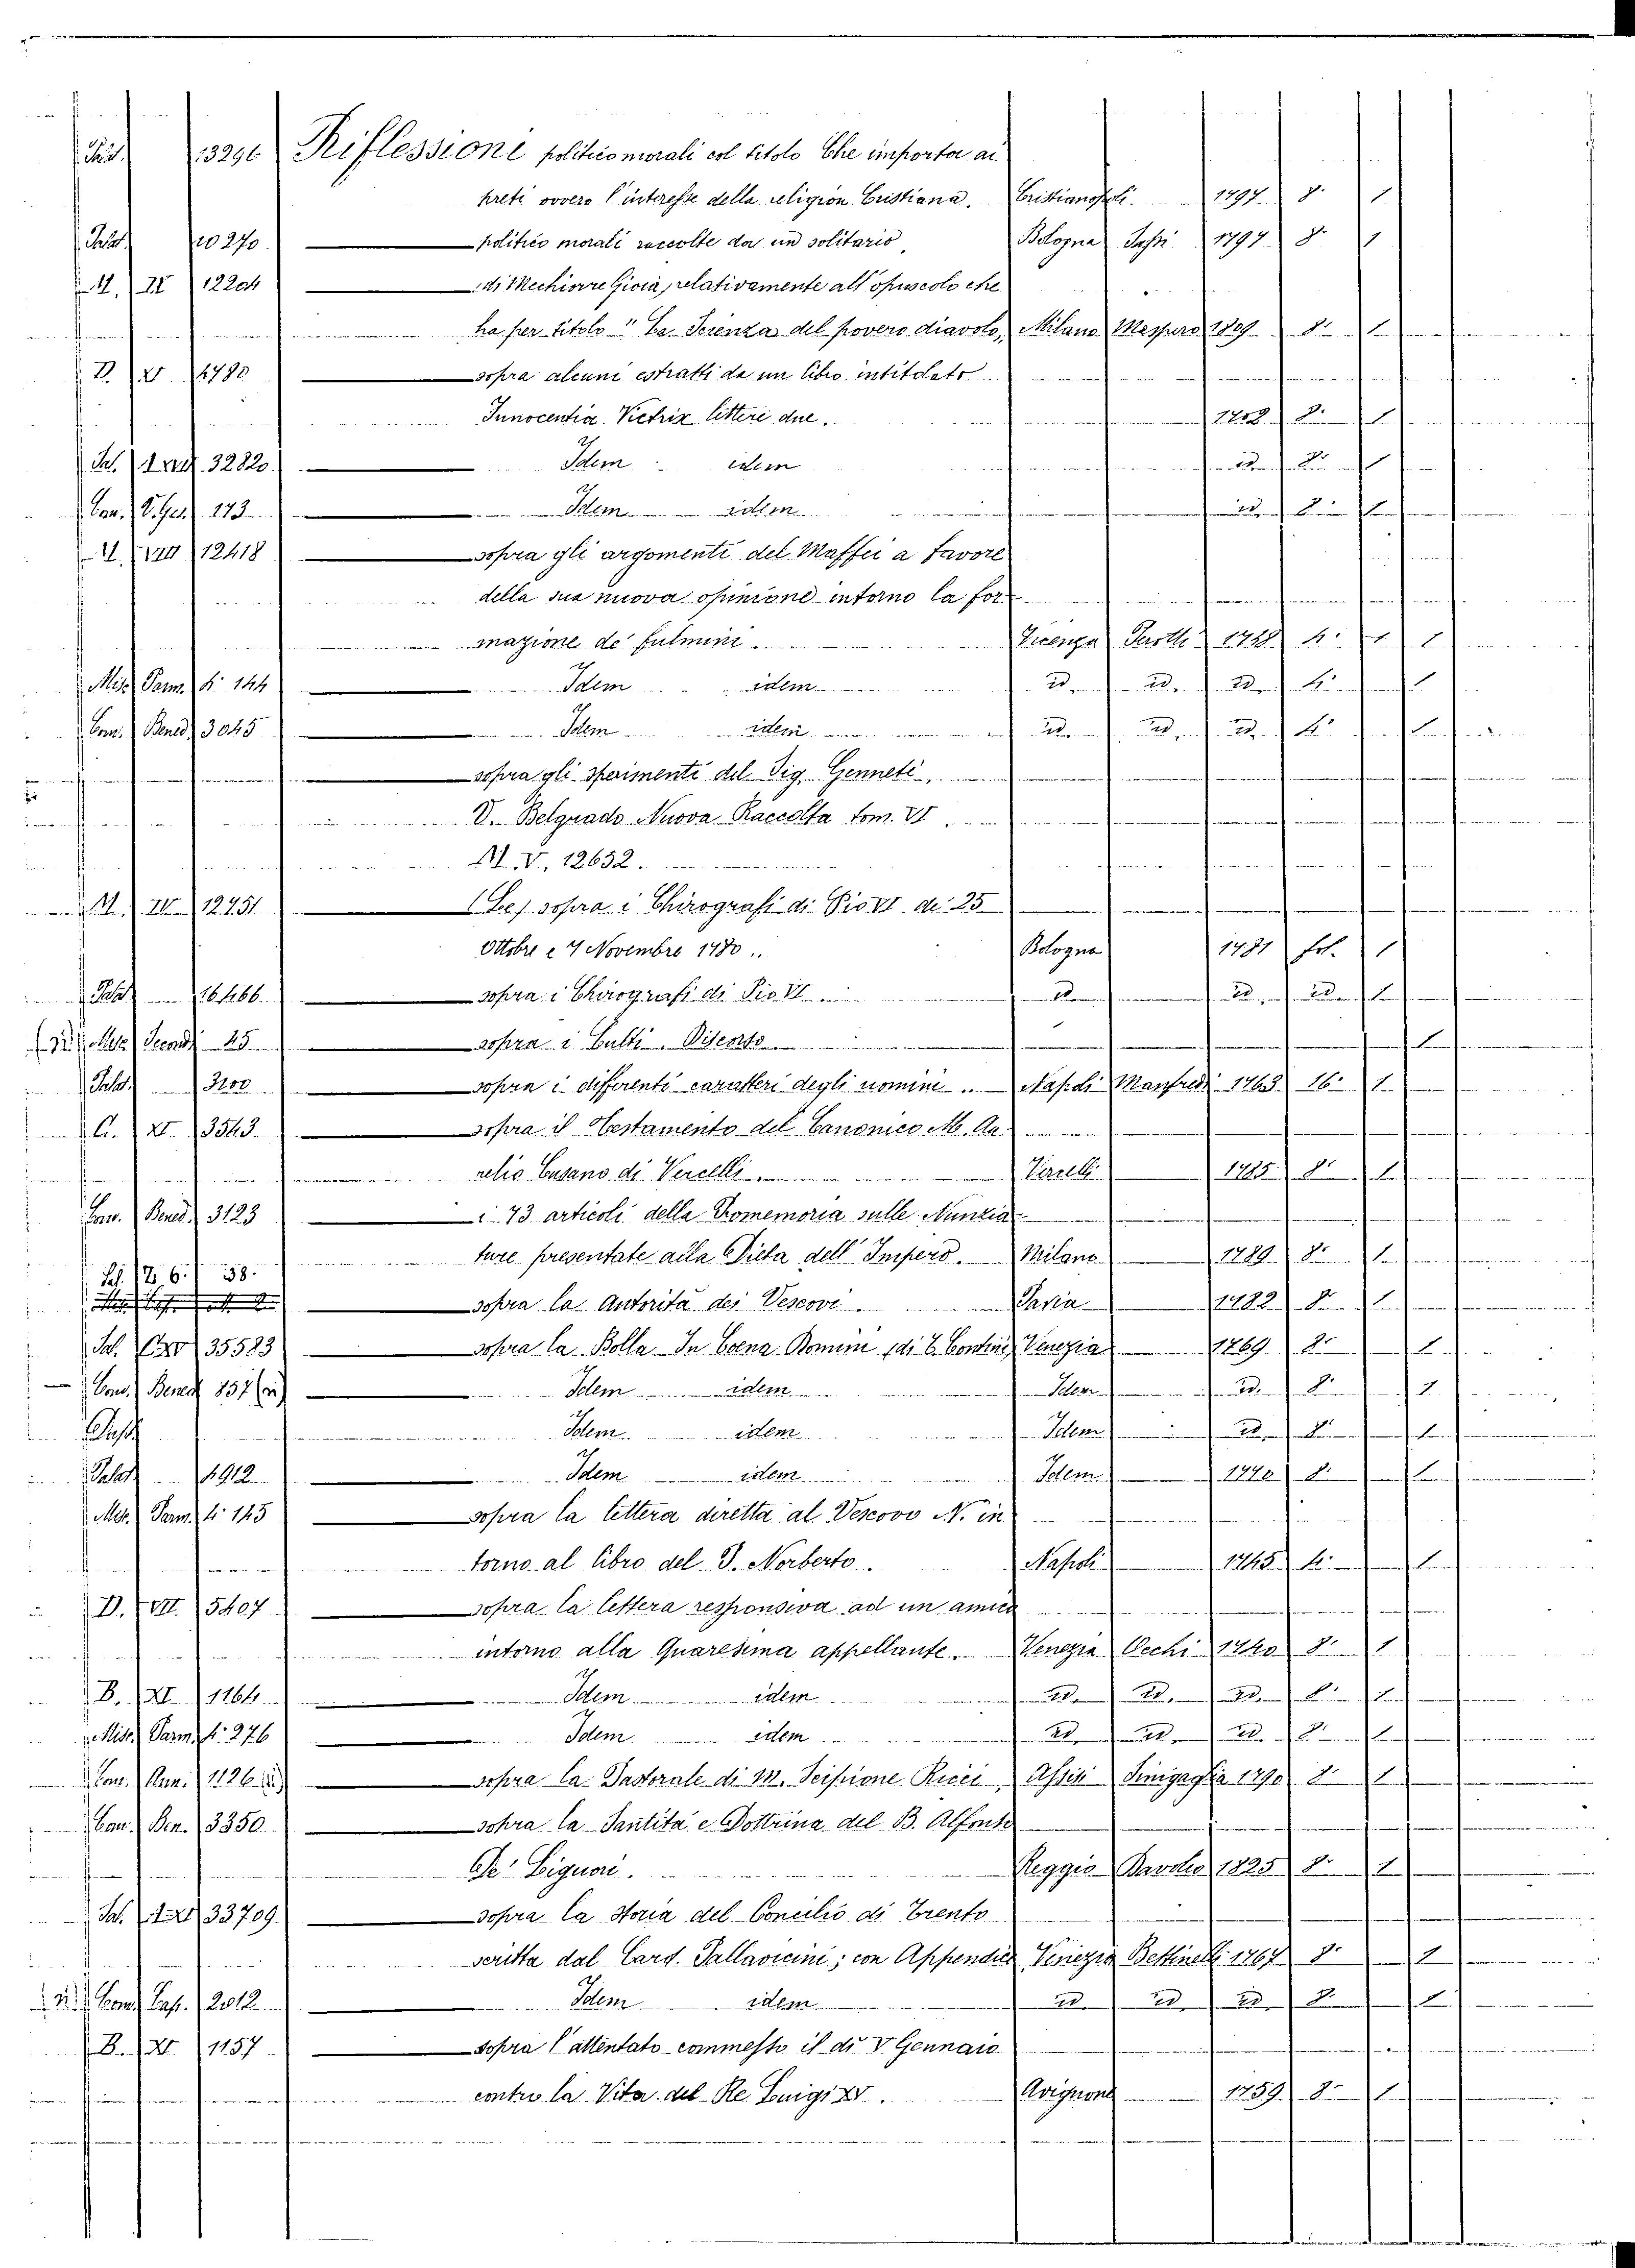 Palat. 13296 Riflessioni politico morali col titolo Che importa ai
preti ovvero l'interesse della religion Cristiana. Cristianopoli. 1797 8° 1
Palat. 10270 politico morali raccolte da un solitario Bologna Sassi 1797 8° 1
M. IV 12204 di Mechiorre Gioia, relativamente all'opuscolo che
ha per titolo " La Scienza del povero diavolo, Milano 1809 8° 1
D. 4780 sopra alcuni estratti da un libro intitolato
Innocentia Victrix lettere due. 8° 1
Sal. 32820 Idem idem id. 8° 1
Con. V. Ges. 173 Idem idem id. 8° 1
M. VIII 12418 sopra gli argomenti del Maffei a favore
della sua nuova opinione intorno la for
mazione de' fulmini Vicenza 1748 4° 1 1
Misc. Parm. 4° 144 Idem idem id. id. id. 4° 1
Conv. Bened. 3045 Idem idem id. id. id. 4° 1
sopra gli sperimenti del Sig. Genneti.
V. Belgrado Nuova Raccolta tom. VI
M. V. 12652.
M. IV 12451 (Le) sopra i Chirografi di Pio VI de' 25
Ottobre e 7 Novembre 1780.. Bologna 1781 fol. 1
Palat. 16466 sopra i Chirografi di Pio VI id. id. id. 1
25 sopra i Culti. Discorso 1
Palat. 3100 sopra i differenti caratteri degli uomini .. Napoli Manfredi 1763 16° 1
C. XI. 3543 sopra il Testamento del Canonico M. Au
relio Cusano di Vercelli Vercelli 1785 8° 1
Conv. Bened. 3123 i 73 articoli della Promemoria sulle Nunzia
ture presentate alla Dieta dell'Impero. Milano 1789 8° 1
Sal. 6. 38.
sopra la Autorità dei Vescovi Pavia 1782 8° 1
Sal. 35583 sopra la Bolla In Coena Domini (di T. Contini) Venezia 1769 8° 1
Conv. Bened. 857 Idem idem Idem id. 8° 1
Idem idem Idem id. 8° 1
Palat. 4912 Idem idem Idem 1770 8° 1
Misc. Parm. 4° 145 sopra la lettera diretta al Vescovo N. in
torno al libro del P. Norberto. Napoli 1745 4° 1
D. VII. 5407 sopra la lettera responsiva ad un amico
intorno alla Quaresima appellante. Venezia Occhi 1740 8° 1
B. XI 1164 Idem idem id. id. id. 8° 1
Misc. Parm. 4° 276 Idem idem id. id. id. 8° 1
Conv. Ann. 1126 sopra la Pastorale di M. Scipione Ricci, Assisi Sinigaglia 1790 8° 1
Conv. Ben. 3350 sopra la Santità e Dottrina del B. Alfonso
De' Liguori. Reggio Davolio 1825 8° 1
Sal. 33709 sopra la storia del Concilio di Trento
scritta dal Card. Pallavicini; con Appendice Venezia Bettinelli 1767 8° 1
Conv. Cap. 2012 Idem idem id. id. id. 8° 1
B. XI 1157 sopra l'attentato commesso il dì V Gennaio
contro la Vita del Re Luigi XV. Avignone 1759 8° 1